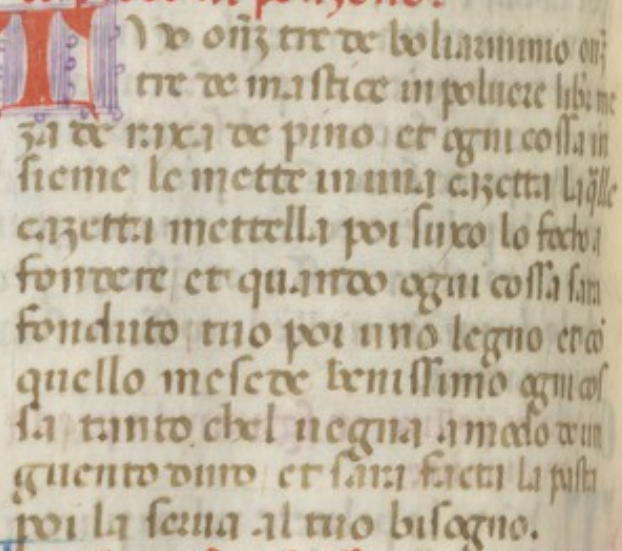 Tuo onz tre de boliarminio onz
tre de mastice in poluere libr me
za de raxa de pino et ogni cossa in
sieme le mette in una cazetta la qlle
cazetta mettella poi suxo lo focho a
fondere et quando ogni cossa sara
fonduto tuo poi uno legno et cō
quello mesede benissimo ogni cos
sa tanto chel uegna a modo de un
guento duro et sara facta la pasta
poi la serua al tuo bisogno.